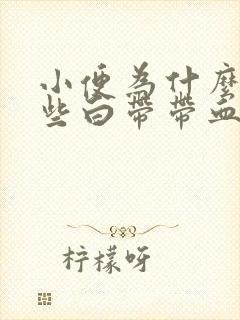 小便為什麼
些白帶帶血
柠檬呀